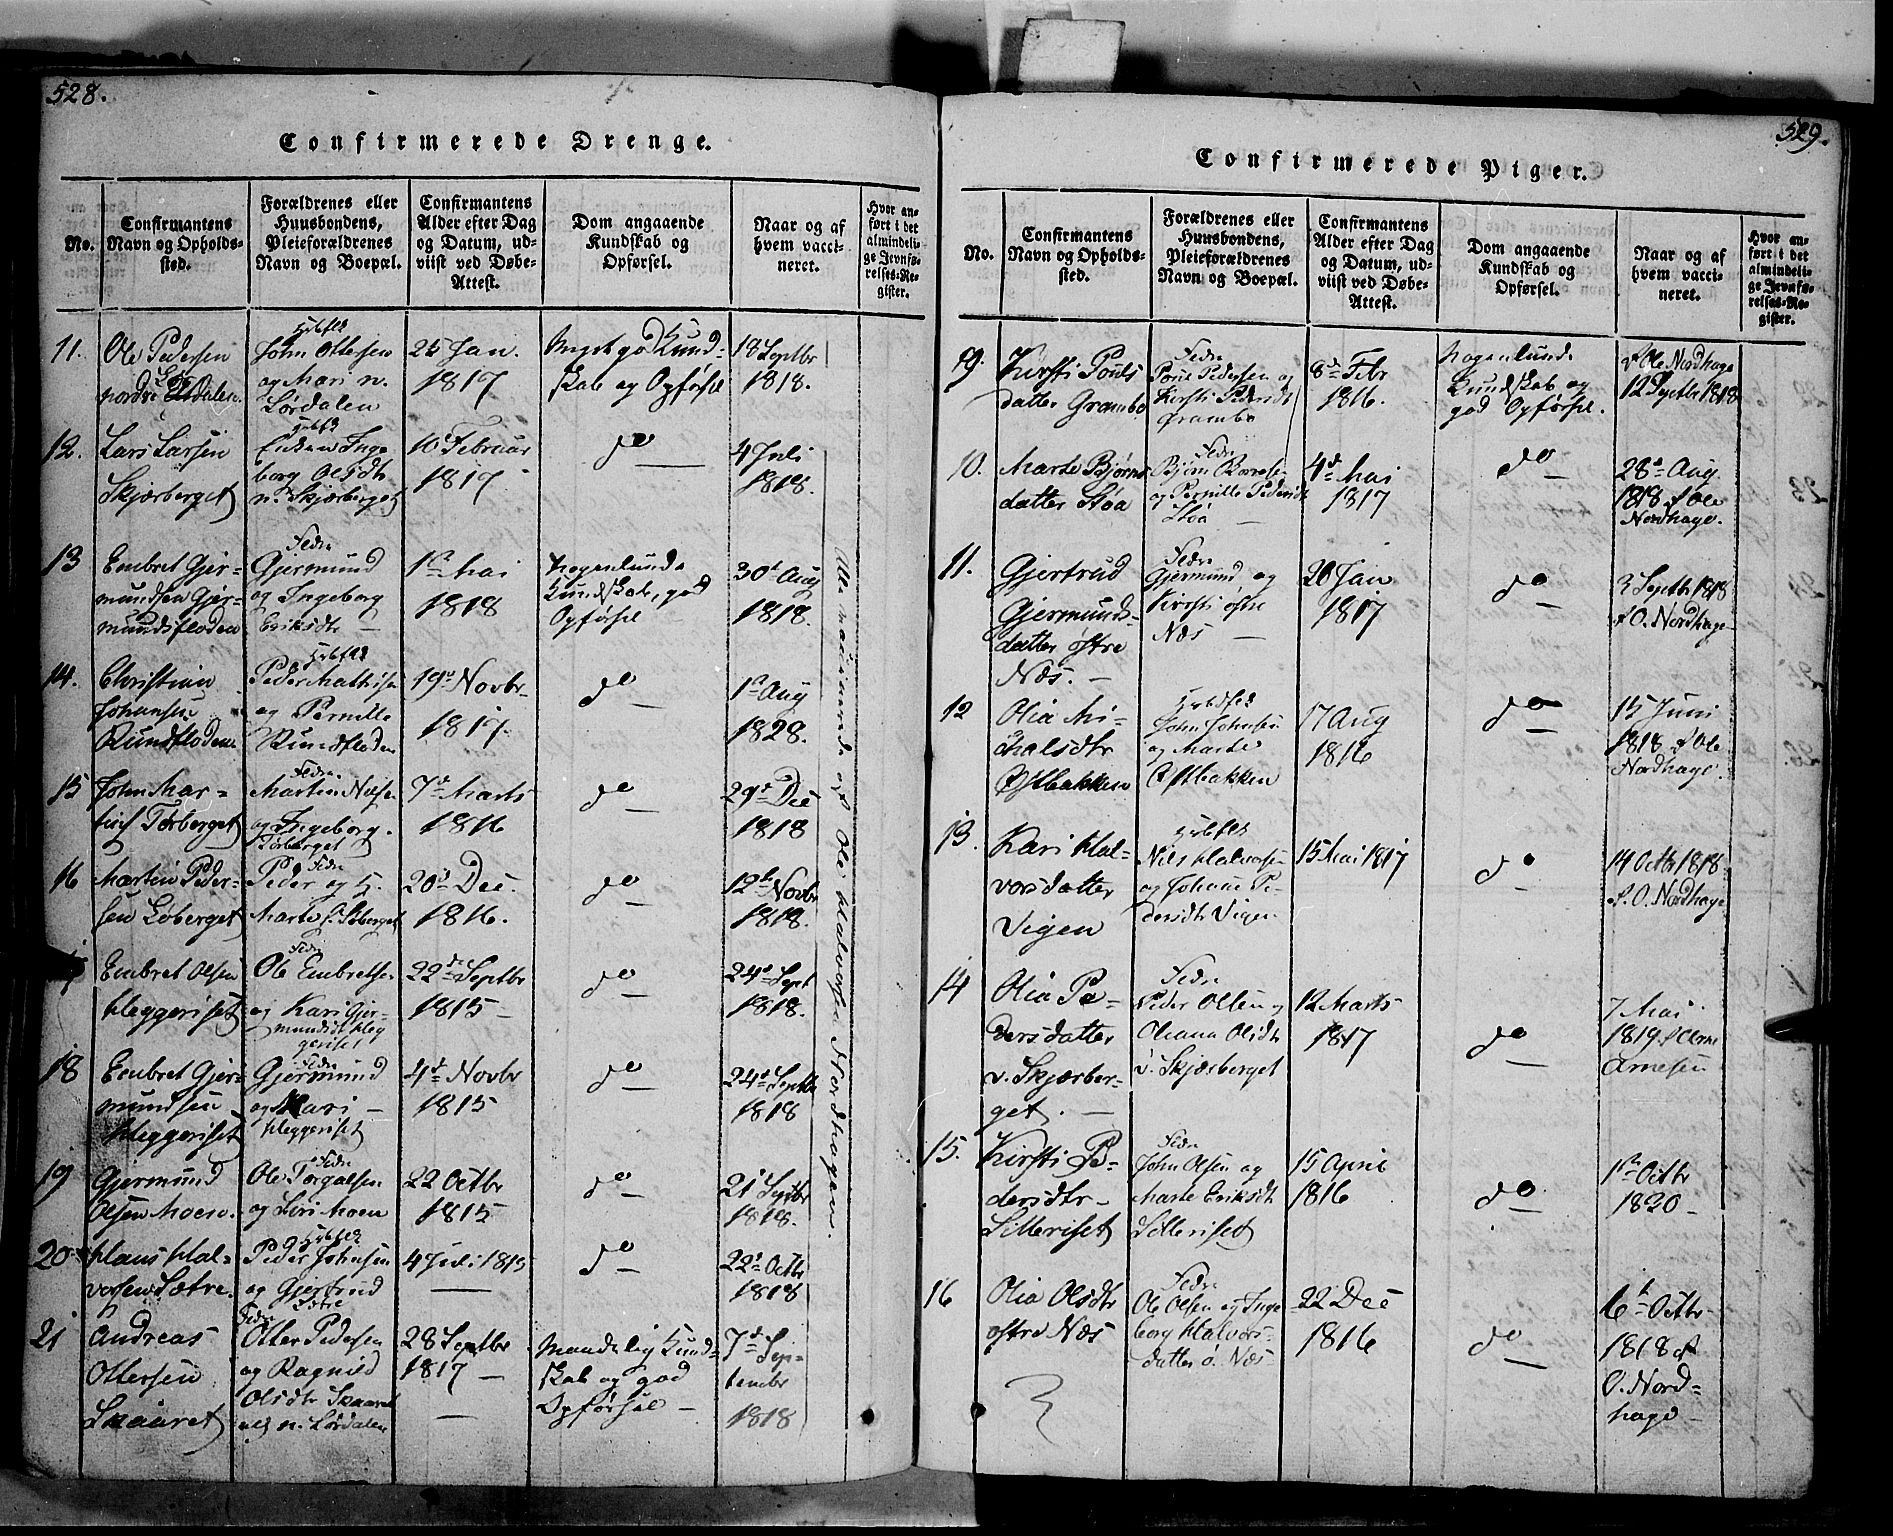 528.
Confirmerede Drenge.
No.
Confirmantens
Navn og Opholds-
sted.
Forældrenes eller
Huusbondens,
Pleieforældrenes
Navn og Boepæl.
Confirmantens
Alder efter Dag
og Datum, ud-
viist ved Døbe-
Attest.
Dom angaaende
Kundskab og
Opførsel.
Naar og af
hvem vacci-
neret.
Hvor an-
ført i det
almindeli-
ge Jevnfø-
relses-Re-
gister.
11.
Ole Pedersen
nordre
John Ottersen
og Mari n.
Lørdalen
25 Jan.
1817
Meget god Kund-
skab og Opførsel
18 Septbr
1818.
12.
Lars Larsen
Skjærberget
Enken Inge
borg Olsdtr
n. Skjærberget
10 Februar
1817
do
4 Juli
1818.
13
Embret Gjer-
mundsen Gjer-
mundsfloden
Fedre
Gjermund
og Ingeborg
Eriksdtr
1st Mai
1818
Nogenlunde
Kundskab, god
Opførsel
30t Aug
1818.
14.
Christian
Johansen
Rundfloden
Peder Mathisen
og Pernille
Rundfloden
19d Novbr
1817.
do
1st Aug
1828.
15
John Mar-
Tørberget
Fedre
Martin Nilsen
og Ingeborg
Tørberget
7d Marts
1816
do
29d Dec
1818
16
Martin Peder-
sen Løberget
Fedre
Peder og
Marte Løberget
20d Dec.
1816.
do
12t Novbr
1818.
Embret Olsen
Heggeriset
Fedre
Ole Embretsen
og Kari Gjer-
mundsdt Heg
geriset
22de Septbr
1815
do
24d Sept
1818.
18
Embret Gjer-
mundsen
Heggeriset
Fedre
Gjermund
og Kari
Heggeriset
4d Novbr
1815
do
24d Septbr
1818
19
Gjermund
Olsen Moen.
Fedre
Ole Torgalsen
og Siri Moen
22 Octbr
1815
do
21 Septbr
1818.
20
Hans Hal-
vorsen Sætre.
Peder Johnsen
og Gjertrud
Sætre
4 Juli 1815
do
22d Octbr
1818
21
Andreas
Ottersen
Skaaret
Fedre
Otter Pedersen
og Ragnild
Olsdtr Skaaret
n. Lørdalen
28 Septbr
1817
Maadelig Kund-
skab og god
Opførsel
7d Sep-
tember
1818
Alle vaccinerede af Ole Halvorsen Nordhagen.
529.
Confirmerede Piger.
No.
Confirmantens
Navn og Opholds-
sted.
Forældrenes eller
Huusbondens,
Pleieforældrenes
Navn og Boepæl.
Confirmantens
Alder efter Dag
og Datum, ud-
viist ved Døbe-
Attest.
Dom angaaende
Kundskab og
Opførsel.
Naar og af
hvem vacci-
neret.
Hvor an-
ført i det
almindeli-
ge Jevnfø-
relses-Re-
gister.
9.
Kirsti Pouls
datter Grambo
Fedre
Poul Pedersen og
Kirsti Pedersdt
Grambo
8d Febr
1816.
Nogenlunde
Kundskab og
god Opførsel.
af Ole Nordhage
12 Septbr 1818
10.
Marte Bjørns
datter Støa
Fedre
Bjørn
og Pernille Pedersdt
Støa
4d Mai
1817
do
28d Aug
1818 af Ole
Nordhage.
11.
Gjertrud
Gjermunds-
datter østre
Næs.
Fedre
Gjermund og
Kirsti østre
Næs
20 Jan
1817
do
3 Septbr 1818
af O. Nordhage
12
Olia Mi-
chalsdtr
Østbakken
John Johnsen
og Marte
Østbakken
17 Aug
1816
do
15 Juni
1818 af Ole
Nordhage.
13.
Kari Hal-
vorsdatter
Vigen
Nils Halvorsen
og Johane Pe-
dersdtr Vigen
15 Mai 1817
do
14 Octbr 1818.
af O. Nordhage
14
Olia Pe-
dersdatter
v. Skjærber-
get.
Fedre
Peder Olsen og
Oliana Olsdtr
v. Skjærberget
12 Marts
1817
do
7 Mai
1819 af Arne
Arnesen
15.
Kirsti Pe-
dersdtr
Litteriset
Fedre
John Olsen og
Marte Eriksdt
Litteriset
15 April
1816
do
1st Octbr
1820
16
Olia Olsdtr
østre Næs
Fedre
Ole Olsen og Inge
borg Halvors-
datter ø. Næs
22 Dec
1816
do
6t Octbr
1818 af
O. Nord-
hage